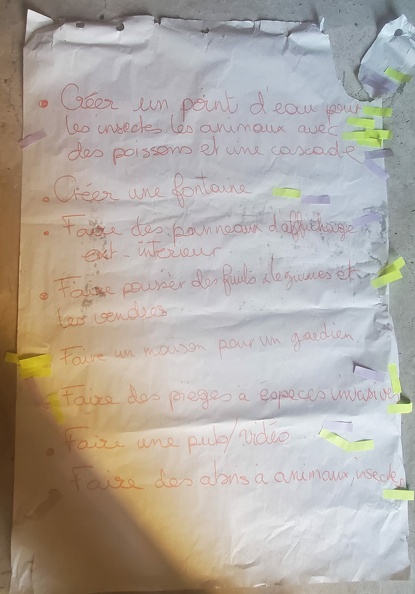 • Créer un point d'eau pour
les insectes les animaux avec
des poissons et une cascade
• Créer une fontaine
• Faire des panneaux d'affichage
ext - interieur
• Faire pousser des fruits légumes et
les vendres
Faire un maison pour un gardien.
Faire des pièges a especes invasives
• Faire une pub/vidéo
Faire des abris a animaux, insectes